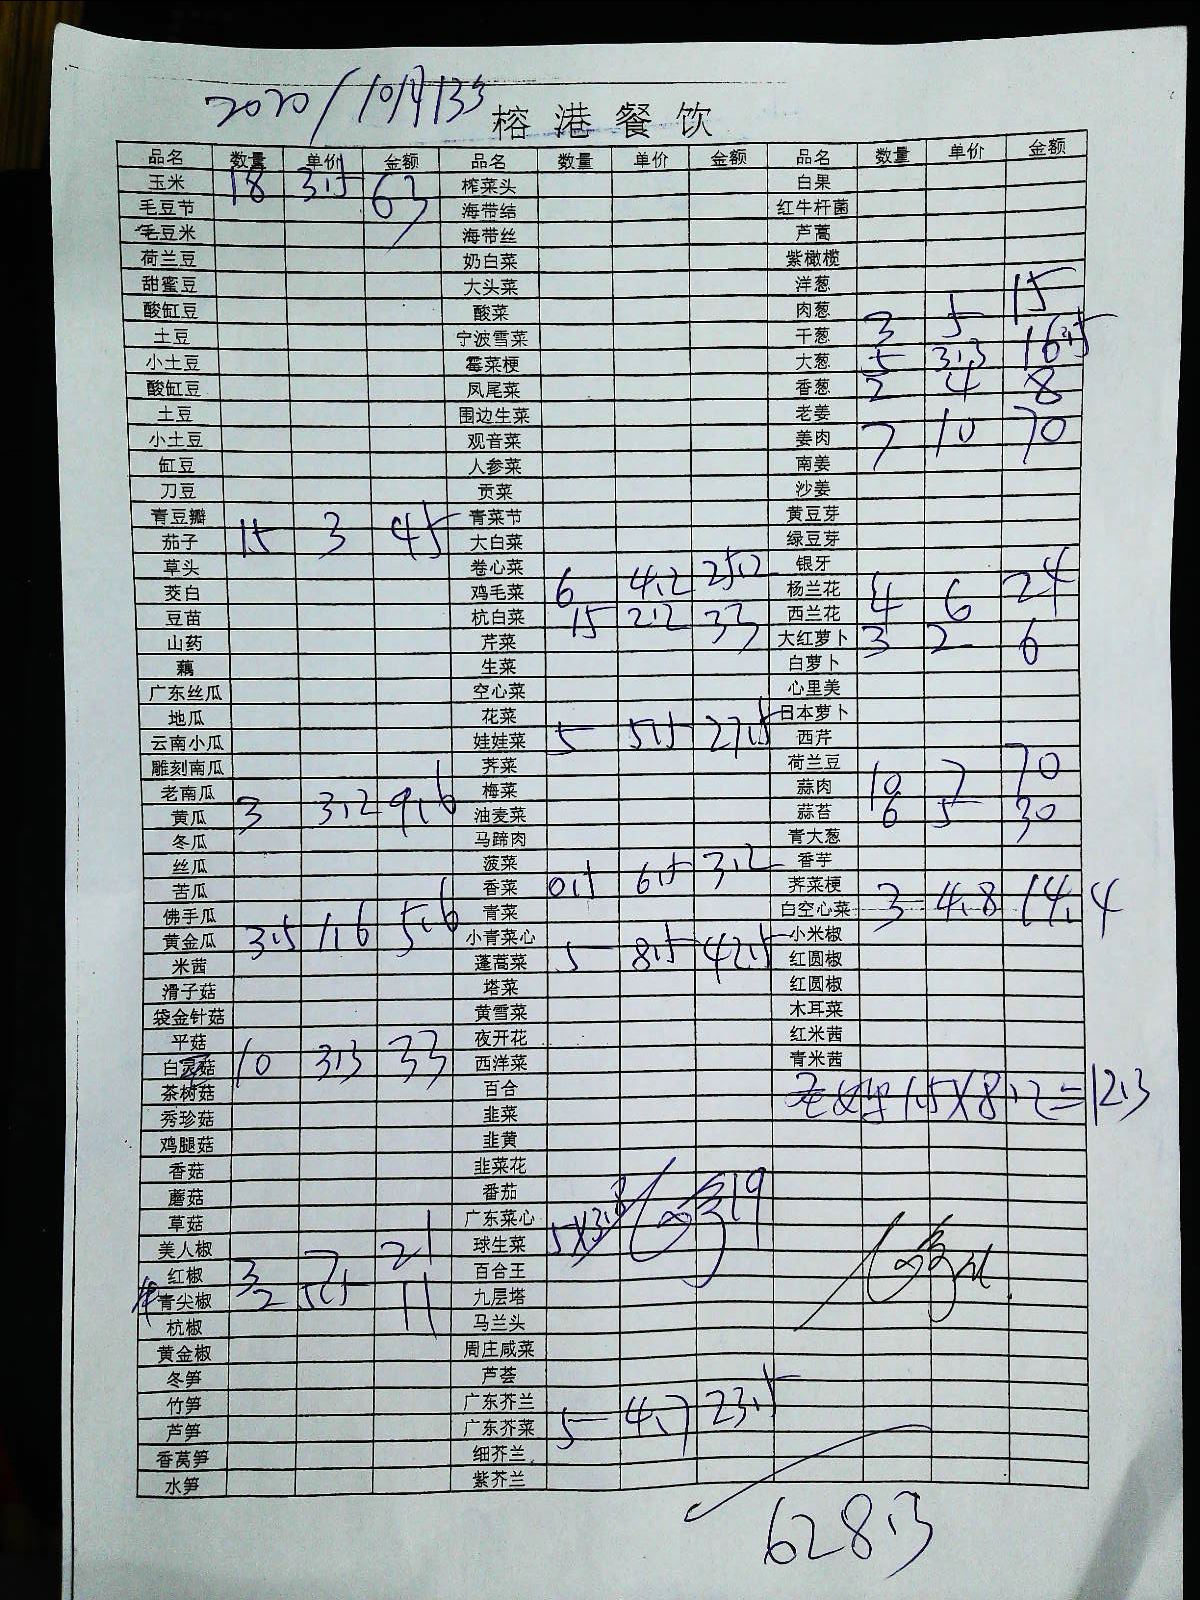 2020/10月133
榕港餐饮
品名 数量 单价 金额 品名 数量 单价 金额 品名 数量 单价 金额
玉米 18 3.5 63 榨菜头 白果
毛豆节 海带结 红牛杆菌
毛豆米 海带丝 芦蒿
荷兰豆 奶白菜 紫橄榄
甜蜜豆 大头菜 洋葱
酸缸豆 酸菜 肉葱
土豆 宁波雪菜 干葱 3 5 15
小土豆 霉菜梗 大葱 5 3.3 16.5
酸缸豆 凤尾菜 香葱 2 4 8
土豆 围边生菜 老姜
小土豆 观音菜 姜肉 7 10 70
缸豆 人参菜 南姜
刀豆 贡菜 沙姜
青豆瓣 青菜节 黄豆芽
茄子 15 3 45 大白菜 绿豆芽
草头 卷心菜 银牙
茭白 鸡毛菜 6 4.2 25.2 杨兰花
豆苗 杭白菜 15 2.2 33 西兰花 4 6 24
山药 芹菜 大红萝卜 3 2 6
藕 生菜 白萝卜
广东丝瓜 空心菜 心里美
地瓜 花菜 日本萝卜
云南小瓜 娃娃菜 5 5.5 27.5 西芹
雕刻南瓜 荠菜 荷兰豆
老南瓜 梅菜 蒜肉 10 7 70
黄瓜 3 3.2 9.6 油麦菜 蒜苔 6 5 30
冬瓜 马蹄肉 青大葱
丝瓜 菠菜 香芋
苦瓜 香菜 0.5 6.5 3.2 荠菜梗
佛手瓜 青菜 白空心菜 3 4.8 14.4
黄金瓜 3.5 1.6 5.6 小青菜心 小米椒
米茜 蓬蒿菜 5 8.5 42.5 红圆椒
滑子菇 塔菜 红圆椒
袋金针菇 黄雪菜 木耳菜
平菇 夜开花 红米茜
白灵菇 10 3.3 33 西洋菜 青米茜
茶树菇 百合 1.5×8.2=12.3
秀珍菇 韭菜
鸡腿菇 韭黄
香菇 韭菜花
蘑菇 番茄
草菇 广东菜心
美人椒 球生菜 5×3.8 19
红椒 3 7 21 百合王
青尖椒 2 5.5 11 九层塔
杭椒 马兰头
黄金椒 周庄咸菜
冬笋 芦荟
竹笋 广东芥兰
芦笋 广东芥菜 5 4.7 23.5
香莴笋 细芥兰
水笋 紫芥兰
628.3